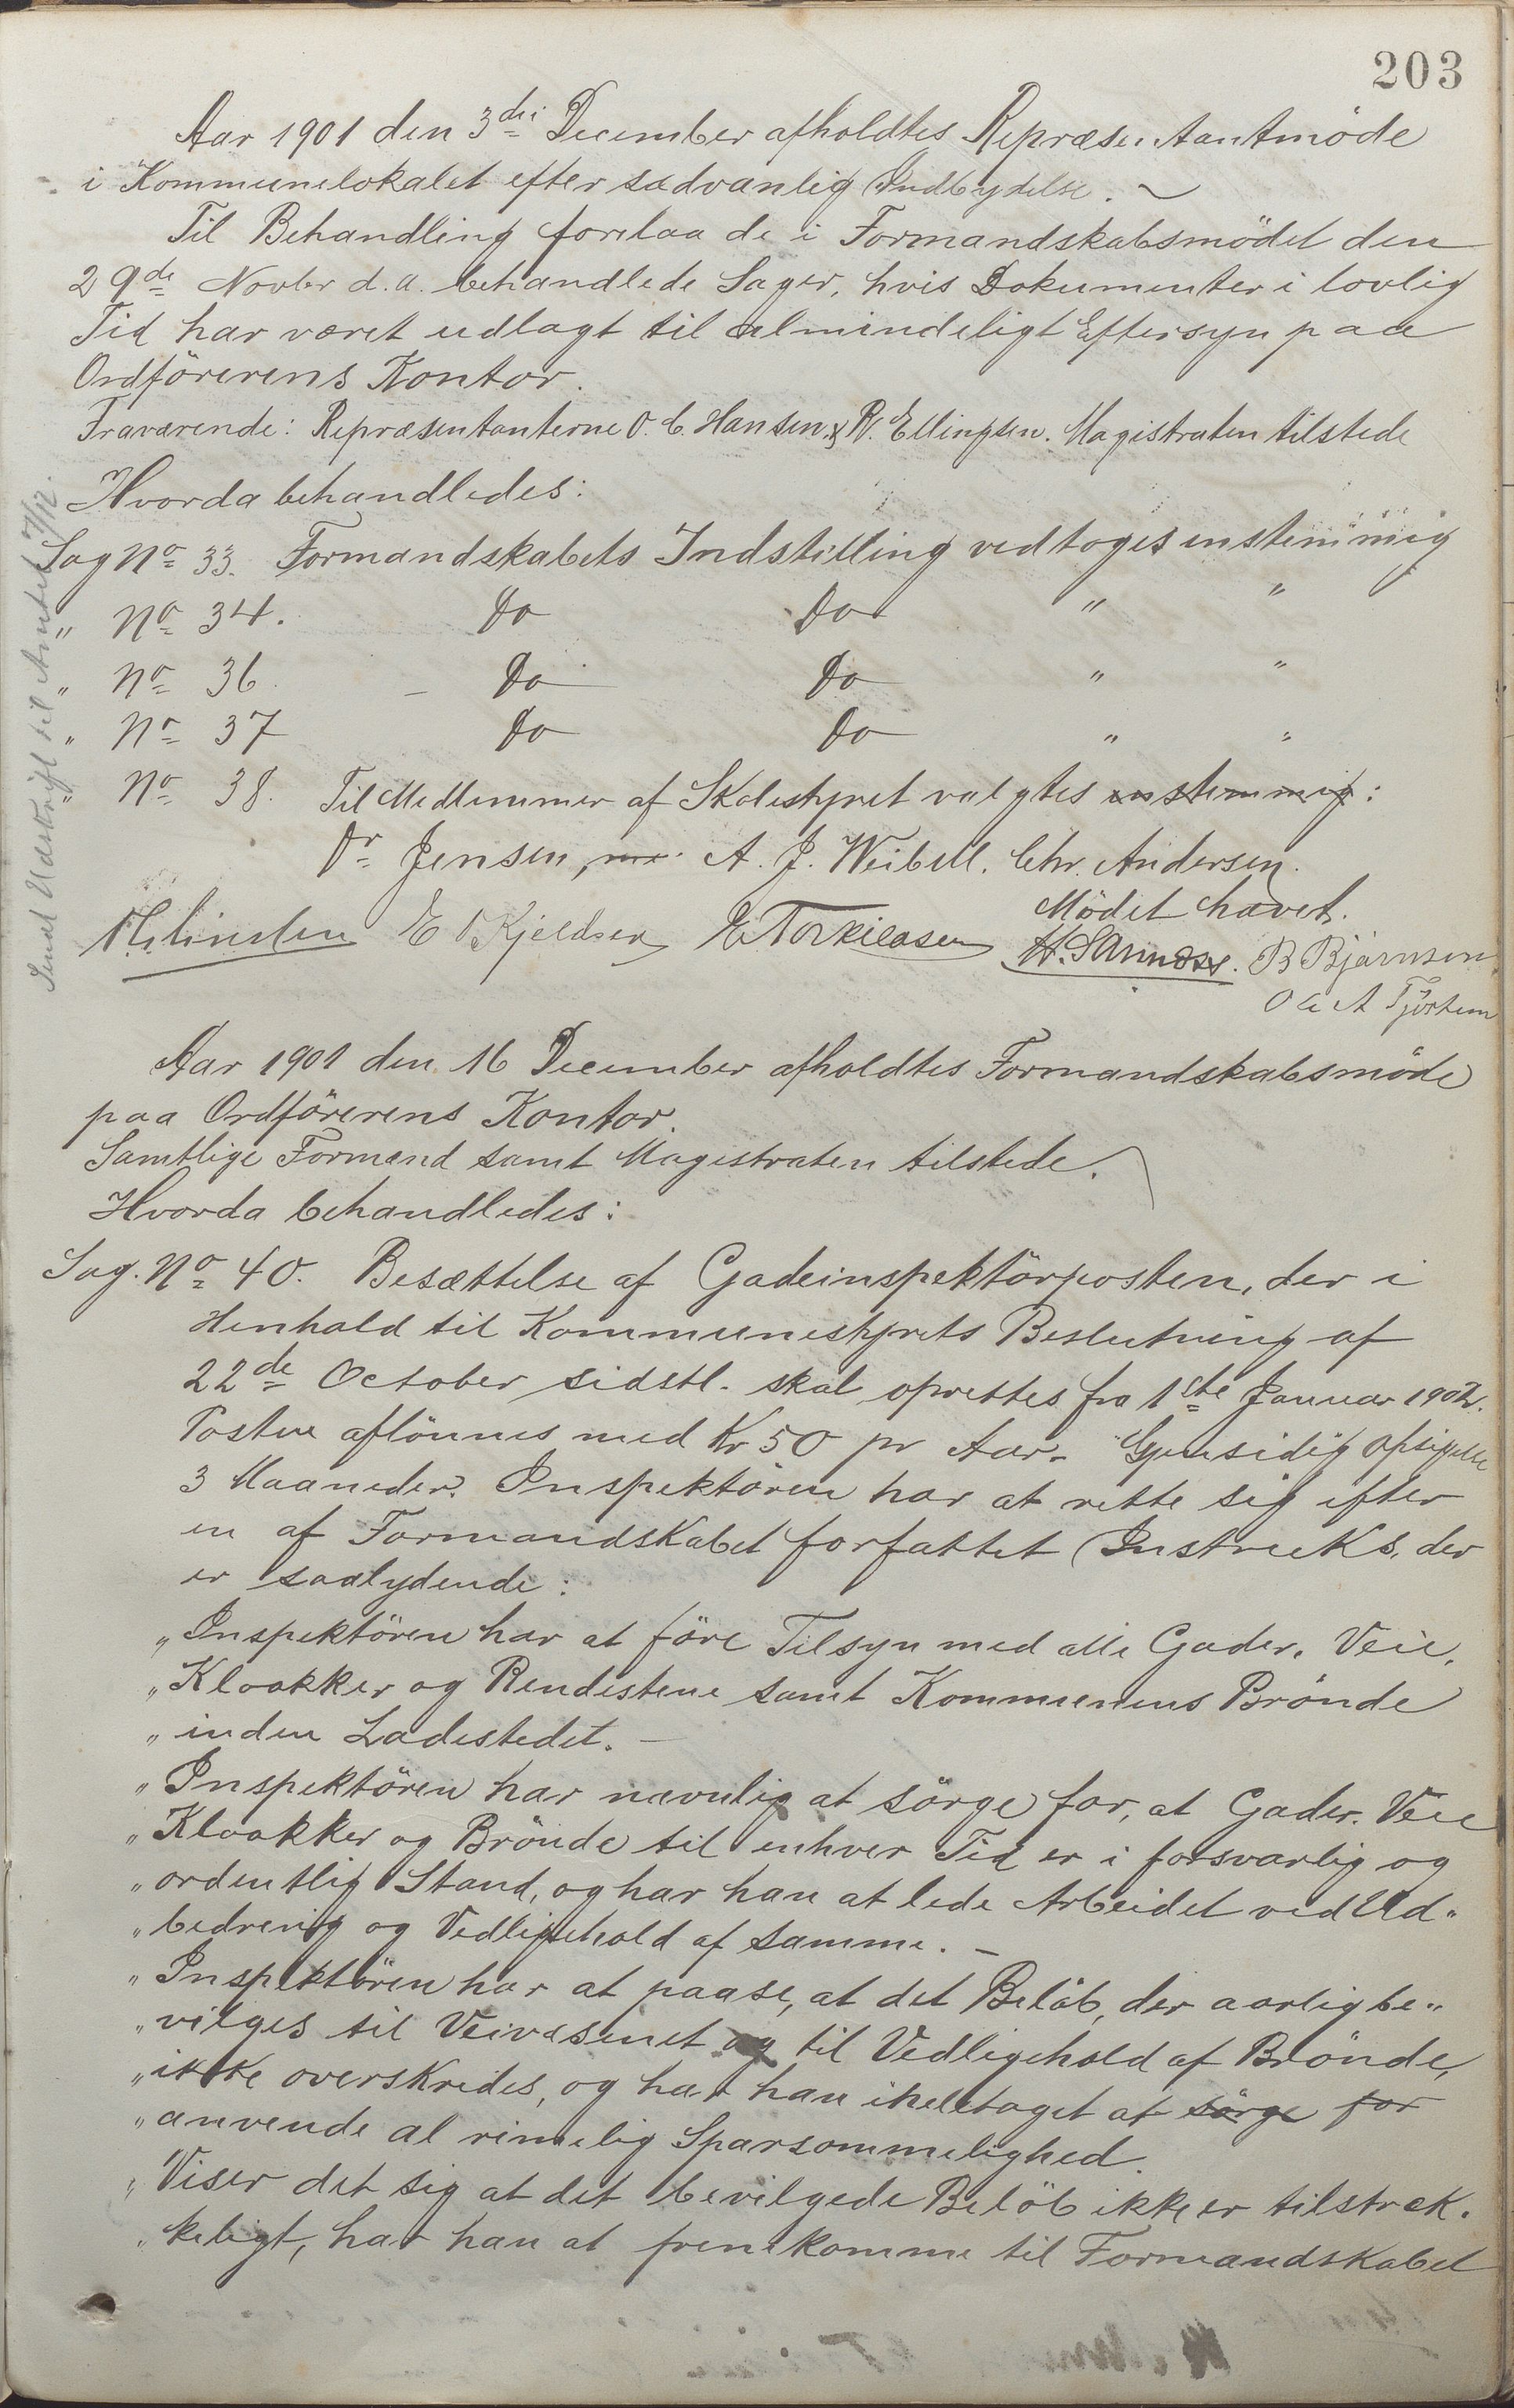 203
Aar 1901 den 3die December afholdtes Repræsentantmöde
i Kommunelokalet efter sædvanlig Indbydelse.
Til Behandling forelaa de i Formandskabsmödet den
29de Novbr d.a. behandlede Sager, hvis Dokumenter i lovlig
Tid har været udlagt til almindeligt Eftersyn paa
Ordförerens Kontor.
Fraværende: Repræsentanterne O. C. Hansen & R. Ellingsen. Magistraten tilstede
Hvorda behandledes:
Send Udskrift til Amtet 7/12.
Sag No 33. Formandskabets Indstilling vedtoges enstemmig
" No 34. Do Do " "
" No 36 - Do Do " "
" No 37 Do Do " "
" No 38. Til Medlemmer af Skolestyret valgtes enstemmig:
Dr Jensen, A. J. Weibell. Chr. Andersen.
Mödet hævet.
E O Kjeldsen E Torkildsen B Bjärnsen
Ole A Tjörtem
Aar 1901 den 16 December afholdtes Formandskabsmöde
paa Ordförerens Kontor.
Samtlige Formænd samt Magistraten tilstede.
Hvorda behandledes:
Sag. No 40. Besættelse af Gadeinspektörposten, der i
Henhold til Kommunestyrets Beslutning af
22de October sidstl. skal oprettes fra 1ste Januar 1902.
Posten aflönnes med Kr 50 pr Aar. Gjensidig Opsigelse
3 Maaneder. Inspektören har at rette sig efter
en af Formandskabet forfattet Instruks, der
er saalydende:
"Inspektören har at före Tilsyn med alle Gader, Veie,
"Kloakker og Rendestene samt Kommunens Brönde
"inden Ladestedet. -
"Inspektören har navnlig at sörge for, at Gader, Veie
"Kloakker og Brönde til enhver Tid er i forsvarlig og
"ordentlig Stand, og har han at lede Arbeidet ved Ud"
"bedring og Vedligehold af samme. -
"Inspektören har at paase, at det Belöb, der aarlig be"
"vilges til Veivæsenet og til Vedligehold af Brönde,
"ikke overskrides, og har han iheletaget at sörge for
"anvende al rimelig Sparsommelighed.
"Viser det sig at det bevilgede Belöb ikke er tilstræk.
"keligt, har han at fremkomme til Formandskabet